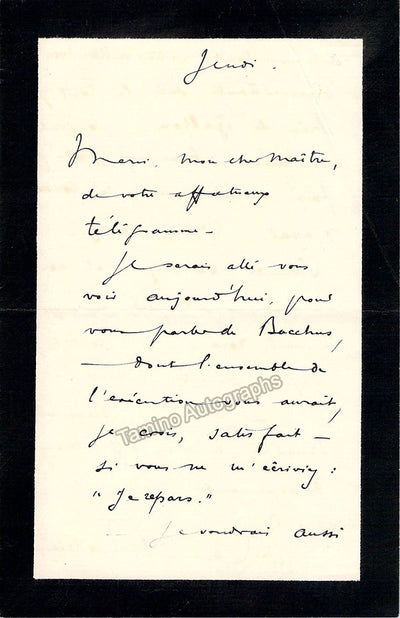 Jeudi.
Merci, mon cher Maître,
de votre affectueux
télégramme –
Je serais allé vous
voir aujourd'hui, pour
vous parler de Bacchus,
– dont l'ensemble de
l'exécution vous aurait,
je crois, satisfait –
si vous ne m'écriviez :
"Je repars."
Je voudrais aussi
Tamino Autographs